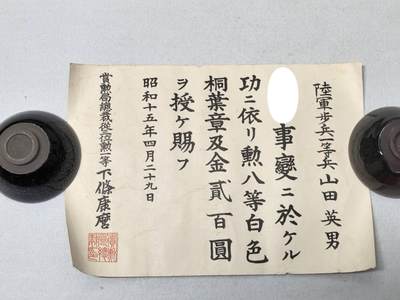 陸軍步兵一等兵 山田英男
事變ニ於ケル
功ニ依リ勲八等白色
桐葉章及金貳百圓
ヲ授ケ賜フ
昭和十五年四月二十九日
賞勲局總裁從 勲一等下條康麿